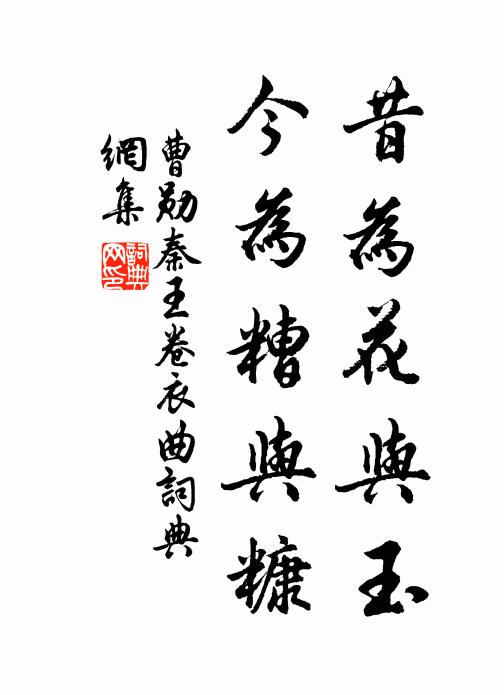 昔為花與玉
今為糟與糠
曹勛秦王卷衣曲詞典
網集
詞典
网印